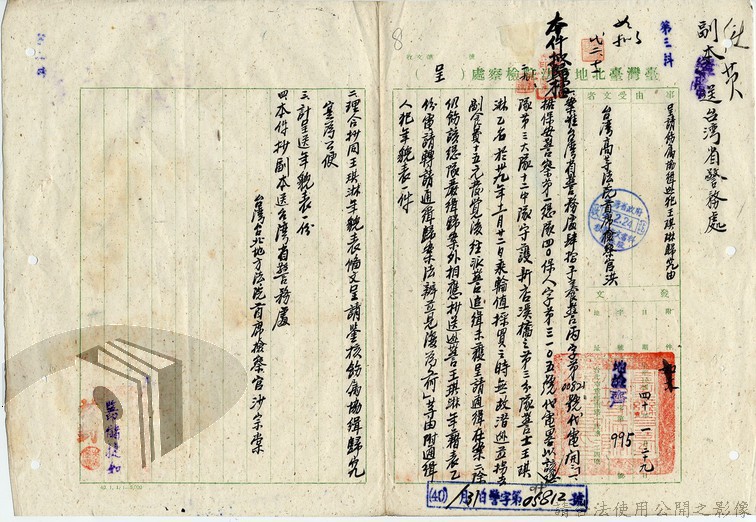 副本
送台湾省警務處
第三科
臺灣臺北地方法院檢察處(　)呈
事由
受文者
呈請飭屬協緝逃犯王琪琳歸究由
台灣高等法院首席檢察官洪
發文
附件
字號
日期
四十 一 二十九
995
一案准台灣省警務處
號代電開「
據保安警察第一總隊四〇保人字第三一〇五號代電略以該總
隊第三大隊十二中隊守護新店溪橋之第三分隊警士王琪
琳乙名於卅九年十一月廿二日乘輪值採買之時無故潛逃並拐去
副食費十五元發覺後經派警追緝未獲呈請通緝在案
仍飭該總隊嚴緝歸案外相應抄送逃警王琪琳年籍表乙
份電請轉請通緝歸案法辦並見復為荷」等由附通緝
人犯年貌表一件
二理合抄同王琪琳年貌表備文呈請鑒核飭屬協緝歸究
實為公便
三計呈送年貌表一份
四本件抄副本送台灣省警務處
台灣台北地方法院首席檢察官沙宗棠
(40) 1月31日警字第05812號
請合法使用公開之影像